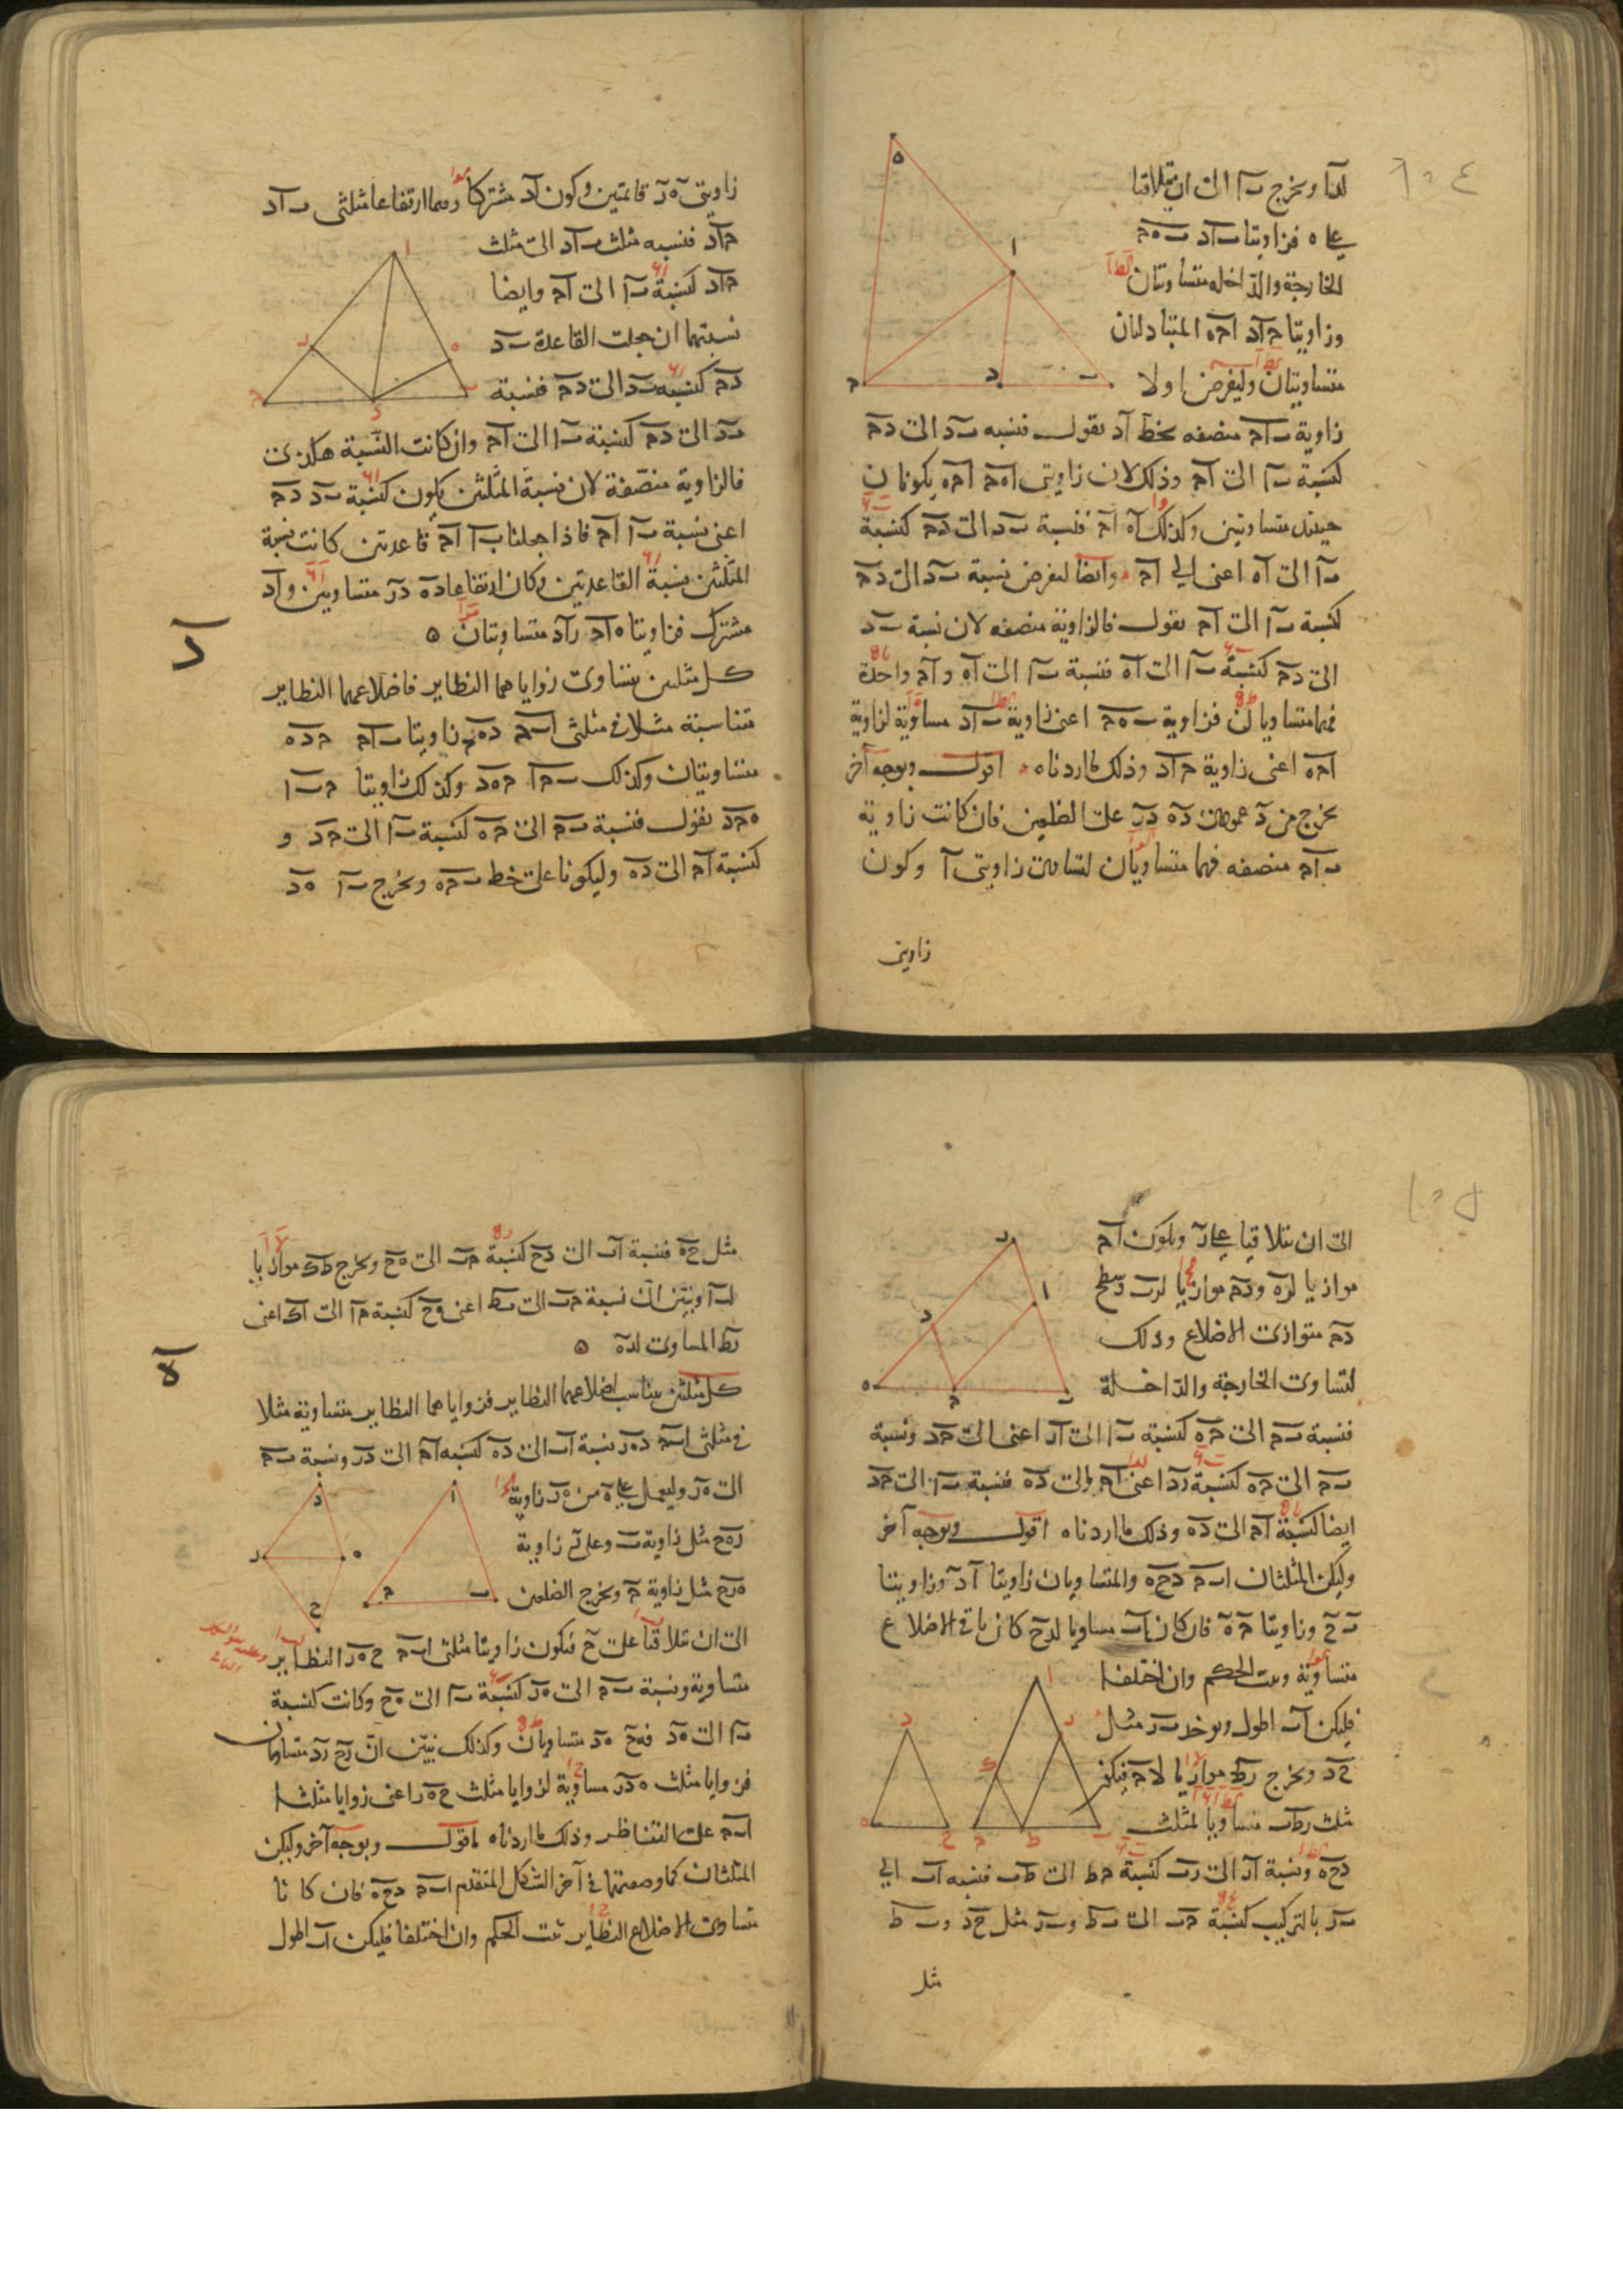 لدا ونخرج ب‍ا الى ان يتلاقيا
على ه فزاويتا ب‍اد ب‍ه‍ج
الخارجة والداخله متساويتان
وزاويتا ج‍اد اج‍ه المتبادلتان
متساويتان وليفرض اولا
زاوية ب‍اج منصفه بخط اد نقول فنسبه ب‍د الى دج
كنسبة ب‍ا الى اج وذلك لان زاويتى اه‍ج اج‍ه يكونان
حينئذ متساويتين وكذلك اه اج فنسبة ب‍د الى دج كنسبة
ب‍ا الى اه اعنى الى اج وايضا ليفرض نسبة ب‍د الى دج
كنسبة ب‍ا الى اج نقول فالزاوية منصفه لان نسبة ب‍د
الى دج كنسبة ب‍ا الى اه فنسبة ب‍ا الى اه و اج واحدة
فهما متساويان فزاوية ب‍ه‍ج اعنى زاوية ب‍اد مساوية لزاوية
اج‍ه اعنى زاوية ج‍اد وذلك ما اردناه اقول وبوجه آخر
نخرج من د عمودى ده در على الضلعين فان كانت زاوية
ب‍اج منصفه فهما متساويان لتساوى زاويتى ا وكون
زاويتى
زاويتى ه ر قائمتين وكون اد مشتركا وهما ارتفاعا مثلثى ب‍اد
ج‍اد فنسبه مثلث ب‍اد الى مثلث
ج‍اد كنسبة ب‍ا الى اج وايضا
نسبتهما ان جعلت القاعدة ب‍د
دج كنسبه ب‍د الى دج فنسبة
ب‍د الى دج كنسبة ب‍ا الى اج وان كانت النسبة هكذى
فالزاوية منصّفة لان نسبة المثلثين يكون كنسبة ب‍د دج
اعنى نسبة ب‍ا اج فاذا جعلنا ب‍ا اج قاعدتين كانت نسبة
المثلثين نسبة القاعدتين وكان ارتفاعاه ده در متساويين و اد
مشترك فزاويتا ه‍اد راد متساويتان ه
كل مثلثين يتساوى زواياهما النظاير فاضلاعهما النظاير
متناسبة مثلا فى مثلثى اب‍ج ده‍ج زاويتا ب‍اج ج‍ده
متساويتان وكذلك ب‍ج‍ا ج‍ه‍د وكذلك زاويتا ج‍ب‍ا
ه‍ج‍د نقول فنسبة ب‍ج الى ج‍ه كنسبة ب‍ا الى ج‍د و
كنسبة اج الى ده وليكونا على خط ب‍ج‍ه ونخرج ب‍ا ه‍د
الى ان يتلاقيا على ر ويكون اج
موازيا لره و دج موازيا لرب فسطح
دج متوازى الاضلاع وذلك
لتساوى الخارجة والداخلة
فنسبة ب‍ج الى ج‍ه كنسبة ب‍ا الى ار اعنى الى ج‍د ونسبة
ب‍ج الى ج‍ه كنسبة رد اعنى اج الى ده فنسبة ب‍ا الى ج‍د
ايضا كنسبة اج الى ده وذلك ما اردناه اقول وبوجه آخر
وليكن المثلثان اب‍ج دح‍ه والمتساويان زاويتا ا د وزاويتا
ب ح وزاويتا ج ه فان كان اب مساويا لدح كان باقى الاضلاع
متساوية وثبت الحكم وان اختلفا
فليكن اب اطول ونوخذ ب‍ر مثل
ح‍د ونخرج رط موازيا لاج فيكون
مثلث رط‍ب مساويا لمثلث
دح‍ه ونسبة ار الى رب كنسبة ج‍ط الى ط‍ب فنسبه اب الى
ب‍ر بالتركيب كنسبة ج‍ب الى ب‍ط وب‍ر مثل ح‍د وب‍ط
مثل
مثل ح‍ه فنسبة اب الى دح كنسبة ج‍ب الى ه‍ح ونخرج ط‍ك موازيا
لب‍ا ونبيّن ان نسبة ج‍ب الى ب‍ط اعنى ه‍ح كنسبة ج‍ا الى اك اعنى
رط المساوى لده ه
كل مثلثين يتناسب اضلاعهما النظاير فزواياهما النظاير متساوية مثلا
فى مثلثى اب‍ج ده‍ر نسبة اب الى ده كنسبه اج الى در ونسبة ب‍ج
الى ه‍ر وليعمل على ه من ه‍ر زاوية
ره‍ح مثل زاوية ب وعلى ر زاوية
ه‍رح مثل زاوية ج ونخرج الضلعين
الى ان يتلاقيا على ح فيكون زاويتا مثلثى اب‍ج ح‍ه‍ر النظاير
متساوية ونسبة ب‍ج الى ه‍ر كنسبة ب‍ا الى ه‍ح وكانت كنسبة
ب‍ا الى ه‍د فه‍ح ه‍د متساويان وكذلك نبيّن انّ رح رد متساويان
فزوايا مثلث ه‍در مساوية لزوايا مثلث ح‍ه‍ر اعنى زوايا مثلث
اب‍ج على التناظر وذلك ما اردناه اقول وبوجه آخر وليكن
المثلثان كما وضعتهما فى آخر الشكل المتقدم اب‍ج دح‍ه فان كانا
متساوى الاضلاع النظاير ثبت الحكم وان اختلفا فليكن اب اطول